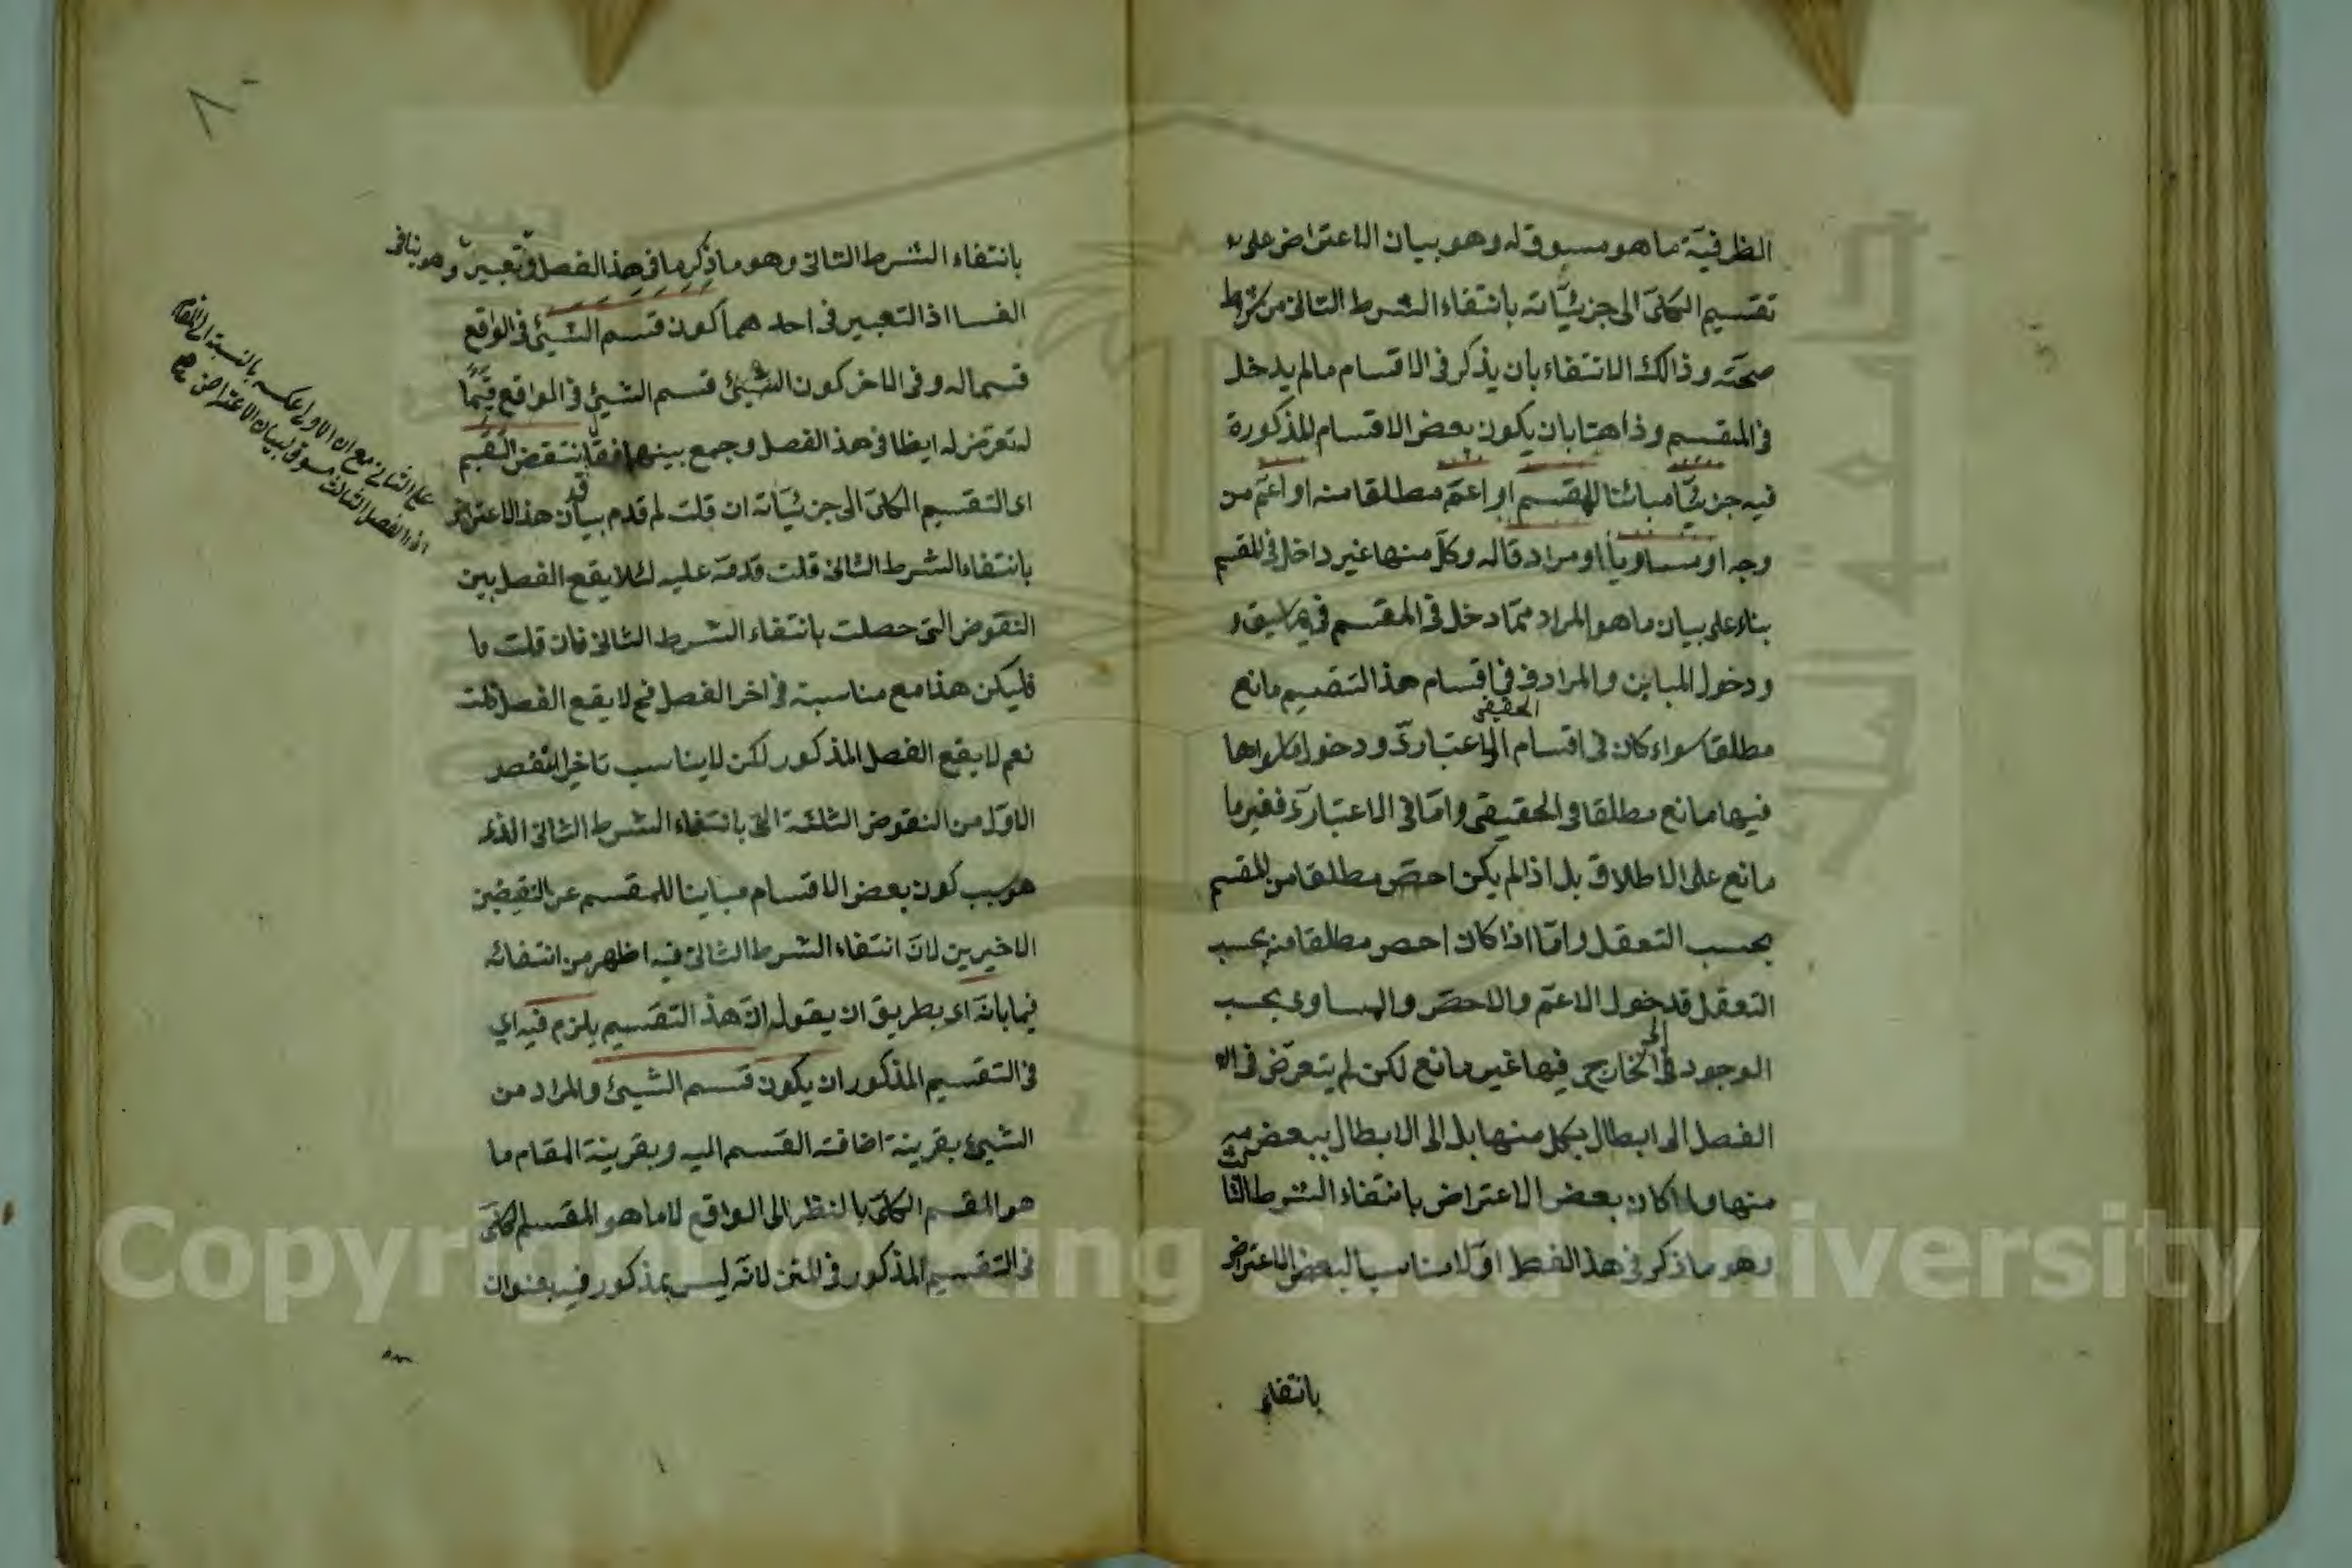 الظرفية ما هو مسوق له وهو بيان الاعتراض على
تقسيم الكلى الى جزئياته بانتفاء الشرط الثانى من شرط
صحته وذالك الانتفاء بان يذكر فى الاقسام مالم يدخل
فى المقسم وذا هنا بان يكون بعض الاقسام المذكورة
فيه جزئيا مبائنا للمقسم او اعم مطلقا منه او اعم من
وجه او مساويا او مرادفا له وكل منها غير داخل فى المقسم
بناء على بيان ما هو المراد مما دخل فى المقسم فيما سبق و
ودخول المباين والمرادف فى اقسام هذا التقسيم مانع
الحقيقى
مطلقا سواء كان فى اقسام الاعتبارى ودخول ما سواها
فيها مانع مطلقا فى الحقيقى واما فى الاعتبارى فغير ما
مانع على الاطلاق بل اذا لم يكن احص مطلقا من المقسم
بحسب التعقل واما اذا كان احص مطلقا منه بحسب
التعقل قد خول الاعم والاحص والمساوى بحسب
الوجود فى الخارج فيها غير مانع لكن لم يتعرض فى
الفصل الى ابطال بكل منها بل الى الابطال ببعض
منها ولما كان بعض الاعتراض بانتفاء الشرط الثا
وهو ما ذكر فى هذا الفصل اولا مناسبا لبعض الاعتراض
بانتفاء
٨٠
بانتفاء الشرط الثانى وهو ما ذكر ما فى هذا الفصل فى تعبير وهو ينافى
الفسا اذ التعبير فى احدهما كون قسم الشيئ فى الواقع
قسما له وفى الاخر كون الشيئ قسم الشيئ فى الواقع قيما
له تعرض له ايظا فى هذ الفصل وجمع بينهما فقا ينتقض التقسيم
قد
اى التقسيم الكلى الى جزئياته ان قلت لم قدم بيان هذا الاعتراض
بانتفاء الشرط الثانى قلت قدمه عليه لئلا يقع الفصل بين
النقوض التى حصلت بانتفاء الشرط الثانى فان قلت ما
فليكن هذا مع مناسبة فى اخر الفصل فح لا يقع الفصل قلت
نعم لا يقع الفصل المذكور لكن لا يناسب تاخير النقص
الاول من النقوض الثلثة التى بانتفاء الشرط الثانى الذى
هو سبب كون بعض الاقسام مباينا للمقسم عن النقيضين
الاخيرين لان انتفاء الشرط الثانى فيه اظهر من انتفائه
فيما بانه اى بطريق ان يقول ان هذ التقسيم يلزم فيه اى
فى التقسيم المذكور ان يكون قسم الشيئ والمراد من
الشيئ بقرينة اضافة القسم اليه وبقرينة المقام ما
هو المقسم الكلى بالنظر الى الواقع لا ما هو المقسم الكلى
فى التقسيم المذكور فى المتن لانه ليس بمذكور فيه بعنوان
على الثانى مع ان الاولى عكسه بالنسبة الى
الفصل الثالث مسوق لبيان الاعتراض